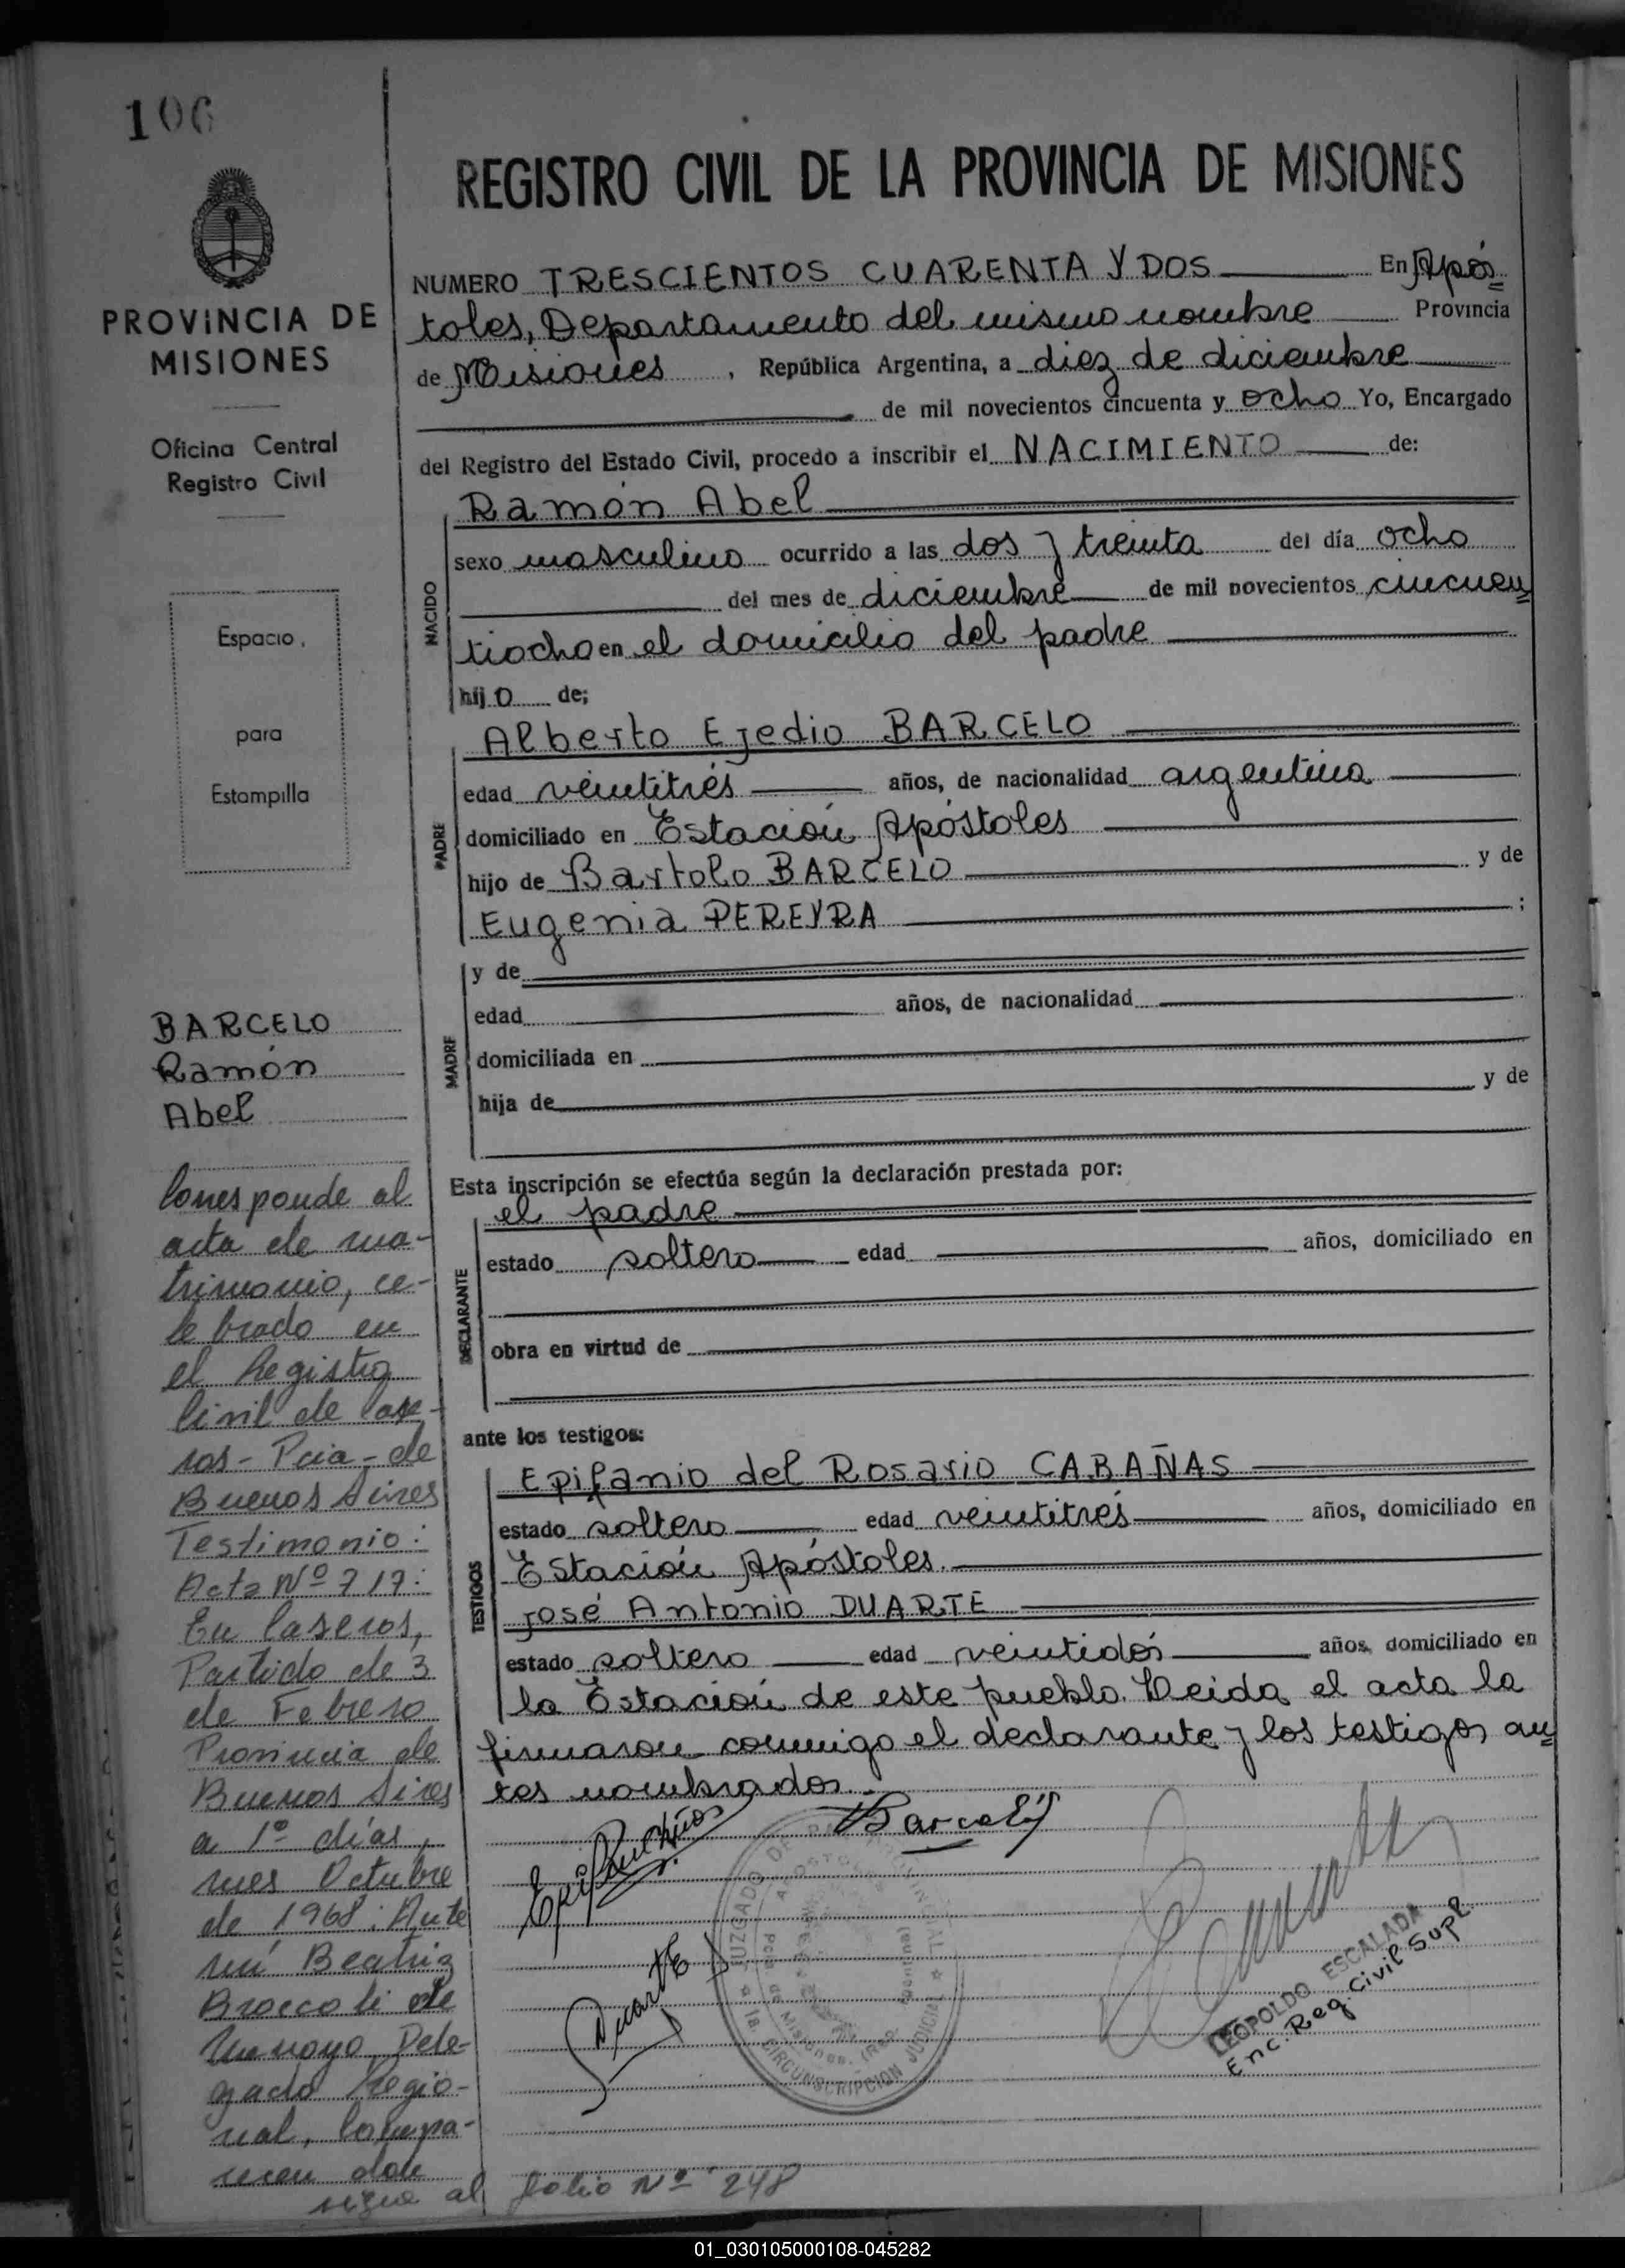 106
PROVINCIA DE
MISIONES
Oficina Central
Registro Civil
Espacio
para
Estampilla
BARCELO
Ramón
Abel
Corresponde al
acta de ma-
trimonio, ce-
lebrado en
el Registro
Civil de Case-
ros - Pcia - de
Buenos Aires
Testimonio:
Acta Nº 717:
En Caseros,
Partido de 3
de Febrero
Provincia de
Buenos Aires
a 1º días,
mes Octubre
de 1968: Ante
mí Beatriz
Broccoli de
Dele-
gada Regio-
nal, Compa-
recen don
sigue al folio Nº 248
REGISTRO CIVIL DE LA PROVINCIA DE MISIONES
NUMERO TRESCIENTOS CUARENTA Y DOS En Após
toles, Departamento del mismo nombre Provincia
de Misiones, República Argentina, a diez de diciembre
de mil novecientos cincuenta y ocho Yo, Encargado
del Registro del Estado Civil, procedo a inscribir el NACIMIENTO de:
NACIDO
Ramón Abel
sexo masculino ocurrido a las dos y treinta del día ocho
del mes de diciembre de mil novecientos cincuen
tiocho en el domicilio del padre
hijo de;
PADRE
Alberto Ejedio BARCELO
edad veintitrés años, de nacionalidad argentina
domiciliado en Estación Apóstoles
hijo de Bartolo BARCELO y de
Eugenia PEREYRA ;
MADRE
y de
edad años, de nacionalidad
domiciliada en
hija de y de
Esta inscripción se efectúa según la declaración prestada por:
DECLARANTE
el padre
estado soltero edad años, domiciliado en
obra en virtud de
ante los testigos:
TESTIGOS
Epifanio del Rosario CABAÑAS
estado soltero edad veintitrés años, domiciliado en
Estación Apóstoles.
José Antonio DUARTE
estado soltero edad veintidós años, domiciliado en
la Estación de este pueblo. Leida el acta la
firmaron conmigo el declarante y los testigos an
tes nombrados.
Barceló
Duarte
JUZGADO DE PAZ
1a. CIRCUNSCRIPCION JUDICIAL
LEOPOLDO ESCALADA
Enc. Reg. Civil Supl.
01_030105000108-045282